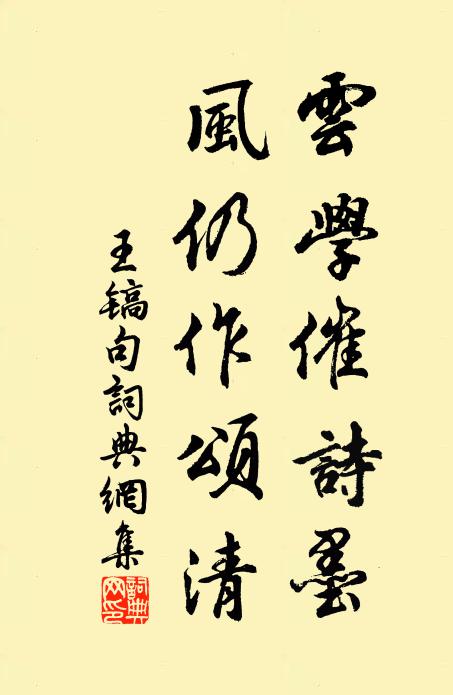 雲學催詩墨
風仍作頌清
王镐句詞典網集
詞典網印